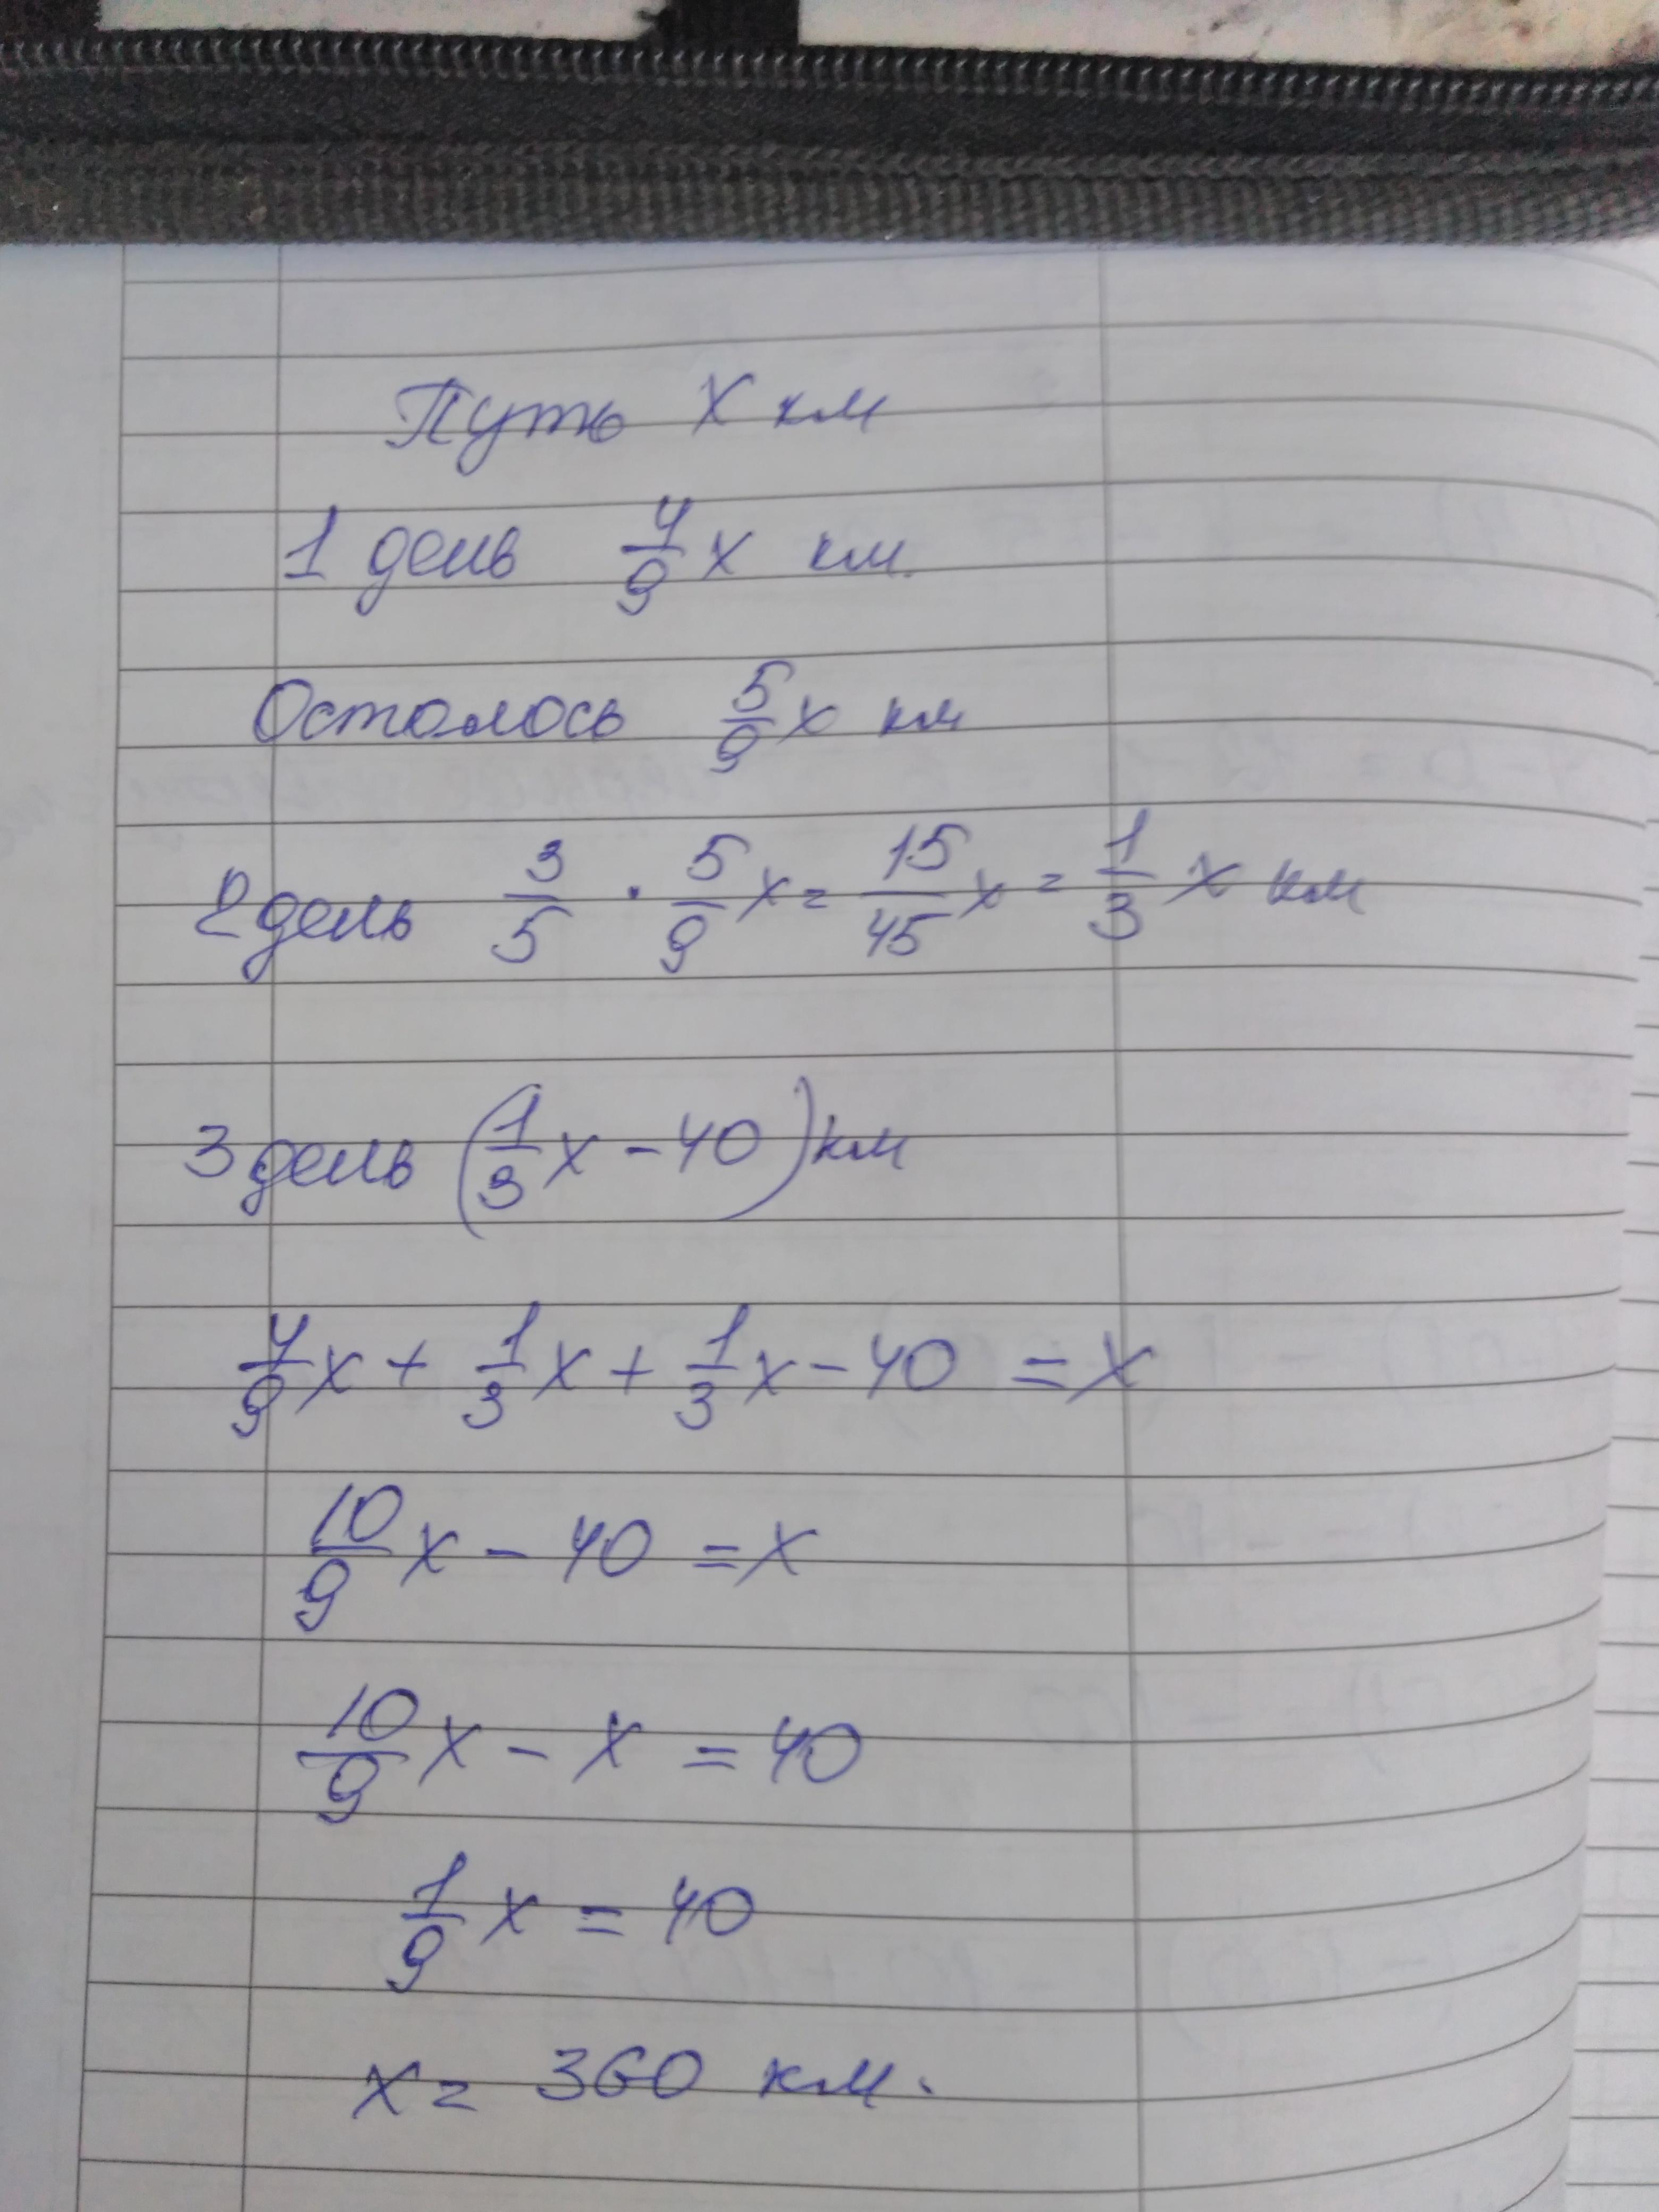 Путь x км
1 день 4/9 x км.
Осталось 5/9 x км
2 день 3/5 · 5/9 x = 15/45 x = 1/3 x км
3 день (1/3 x - 40) км
4/9 x + 1/3 x + 1/3 x - 40 = x
10/9 x - 40 = x
10/9 x - x = 40
1/9 x = 40
x = 360 км.